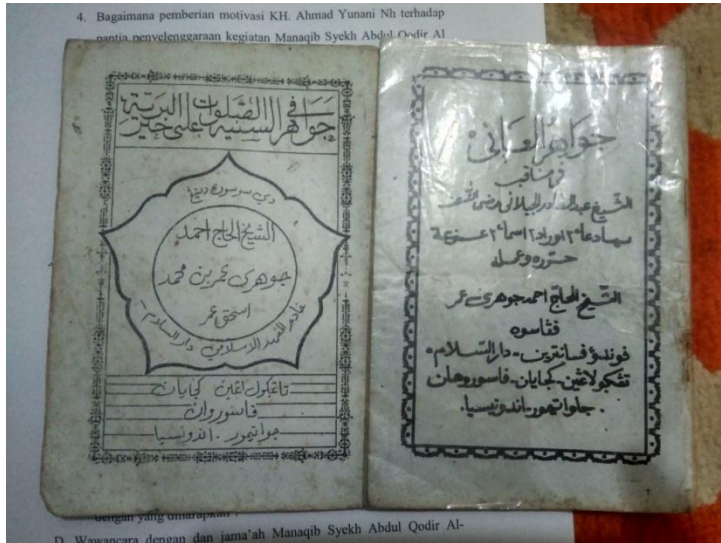 4. Bagaimana pemberian motivasi KH. Ahmad Yunani Nh terhadap
panitia penyelenggaraan kegiatan Manaqib Syekh Abdul Qodir Al
جواهر السنية في الصلوات على خير البرية
الشيخ الحاج احمد
جوهري عمر بن محمد
اسحق عمر
خادم المعهد الاسلامي دار السلام
تاڠكول اڠين كجايان
فاسوروان
جواتيمور - اندونسيا
جواهر المعاني
في مناقب
الشيخ عبد القادر الجيلاني رضي الله عنه
حرره وعمله
الشيخ الحاج احمد جوهري عمر
فڠاسوه
فوندوق فسانترين - دار السلام -
كجايان - فاسوروهان
جاواتيمور - اندونيسيا.
dengan yang diharapkan
D. Wawancara dengan dan jama'ah Manaqib Syekh Abdul Qodir Al-